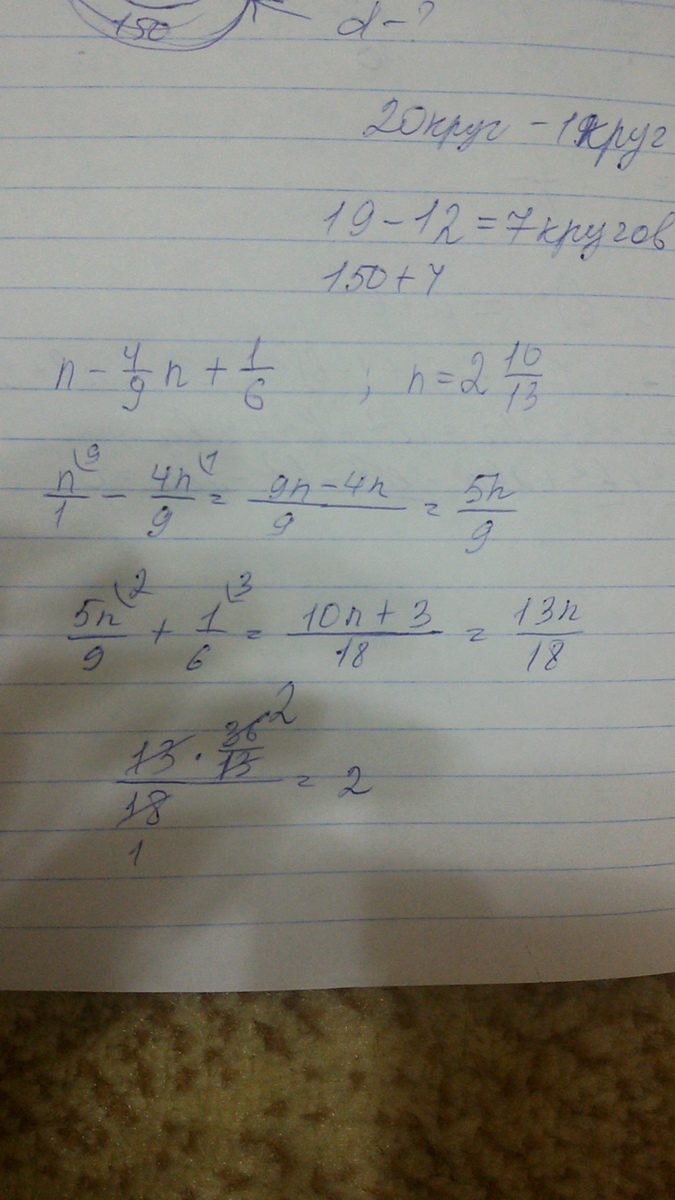 150 d-?
20круг - 19круг
19-12=7кругов
150+7
n - 4/9 n + 1/6 ; n=2 10/13
n/1 ⁽⁹ - 4n/9 ⁽¹ = 9n-4n/9 = 5n/9
5n/9 ⁽² + 1/6 ⁽³ = 10n+3/18 = 13n/18
13 · 36/13 / 18 = 2
2
1